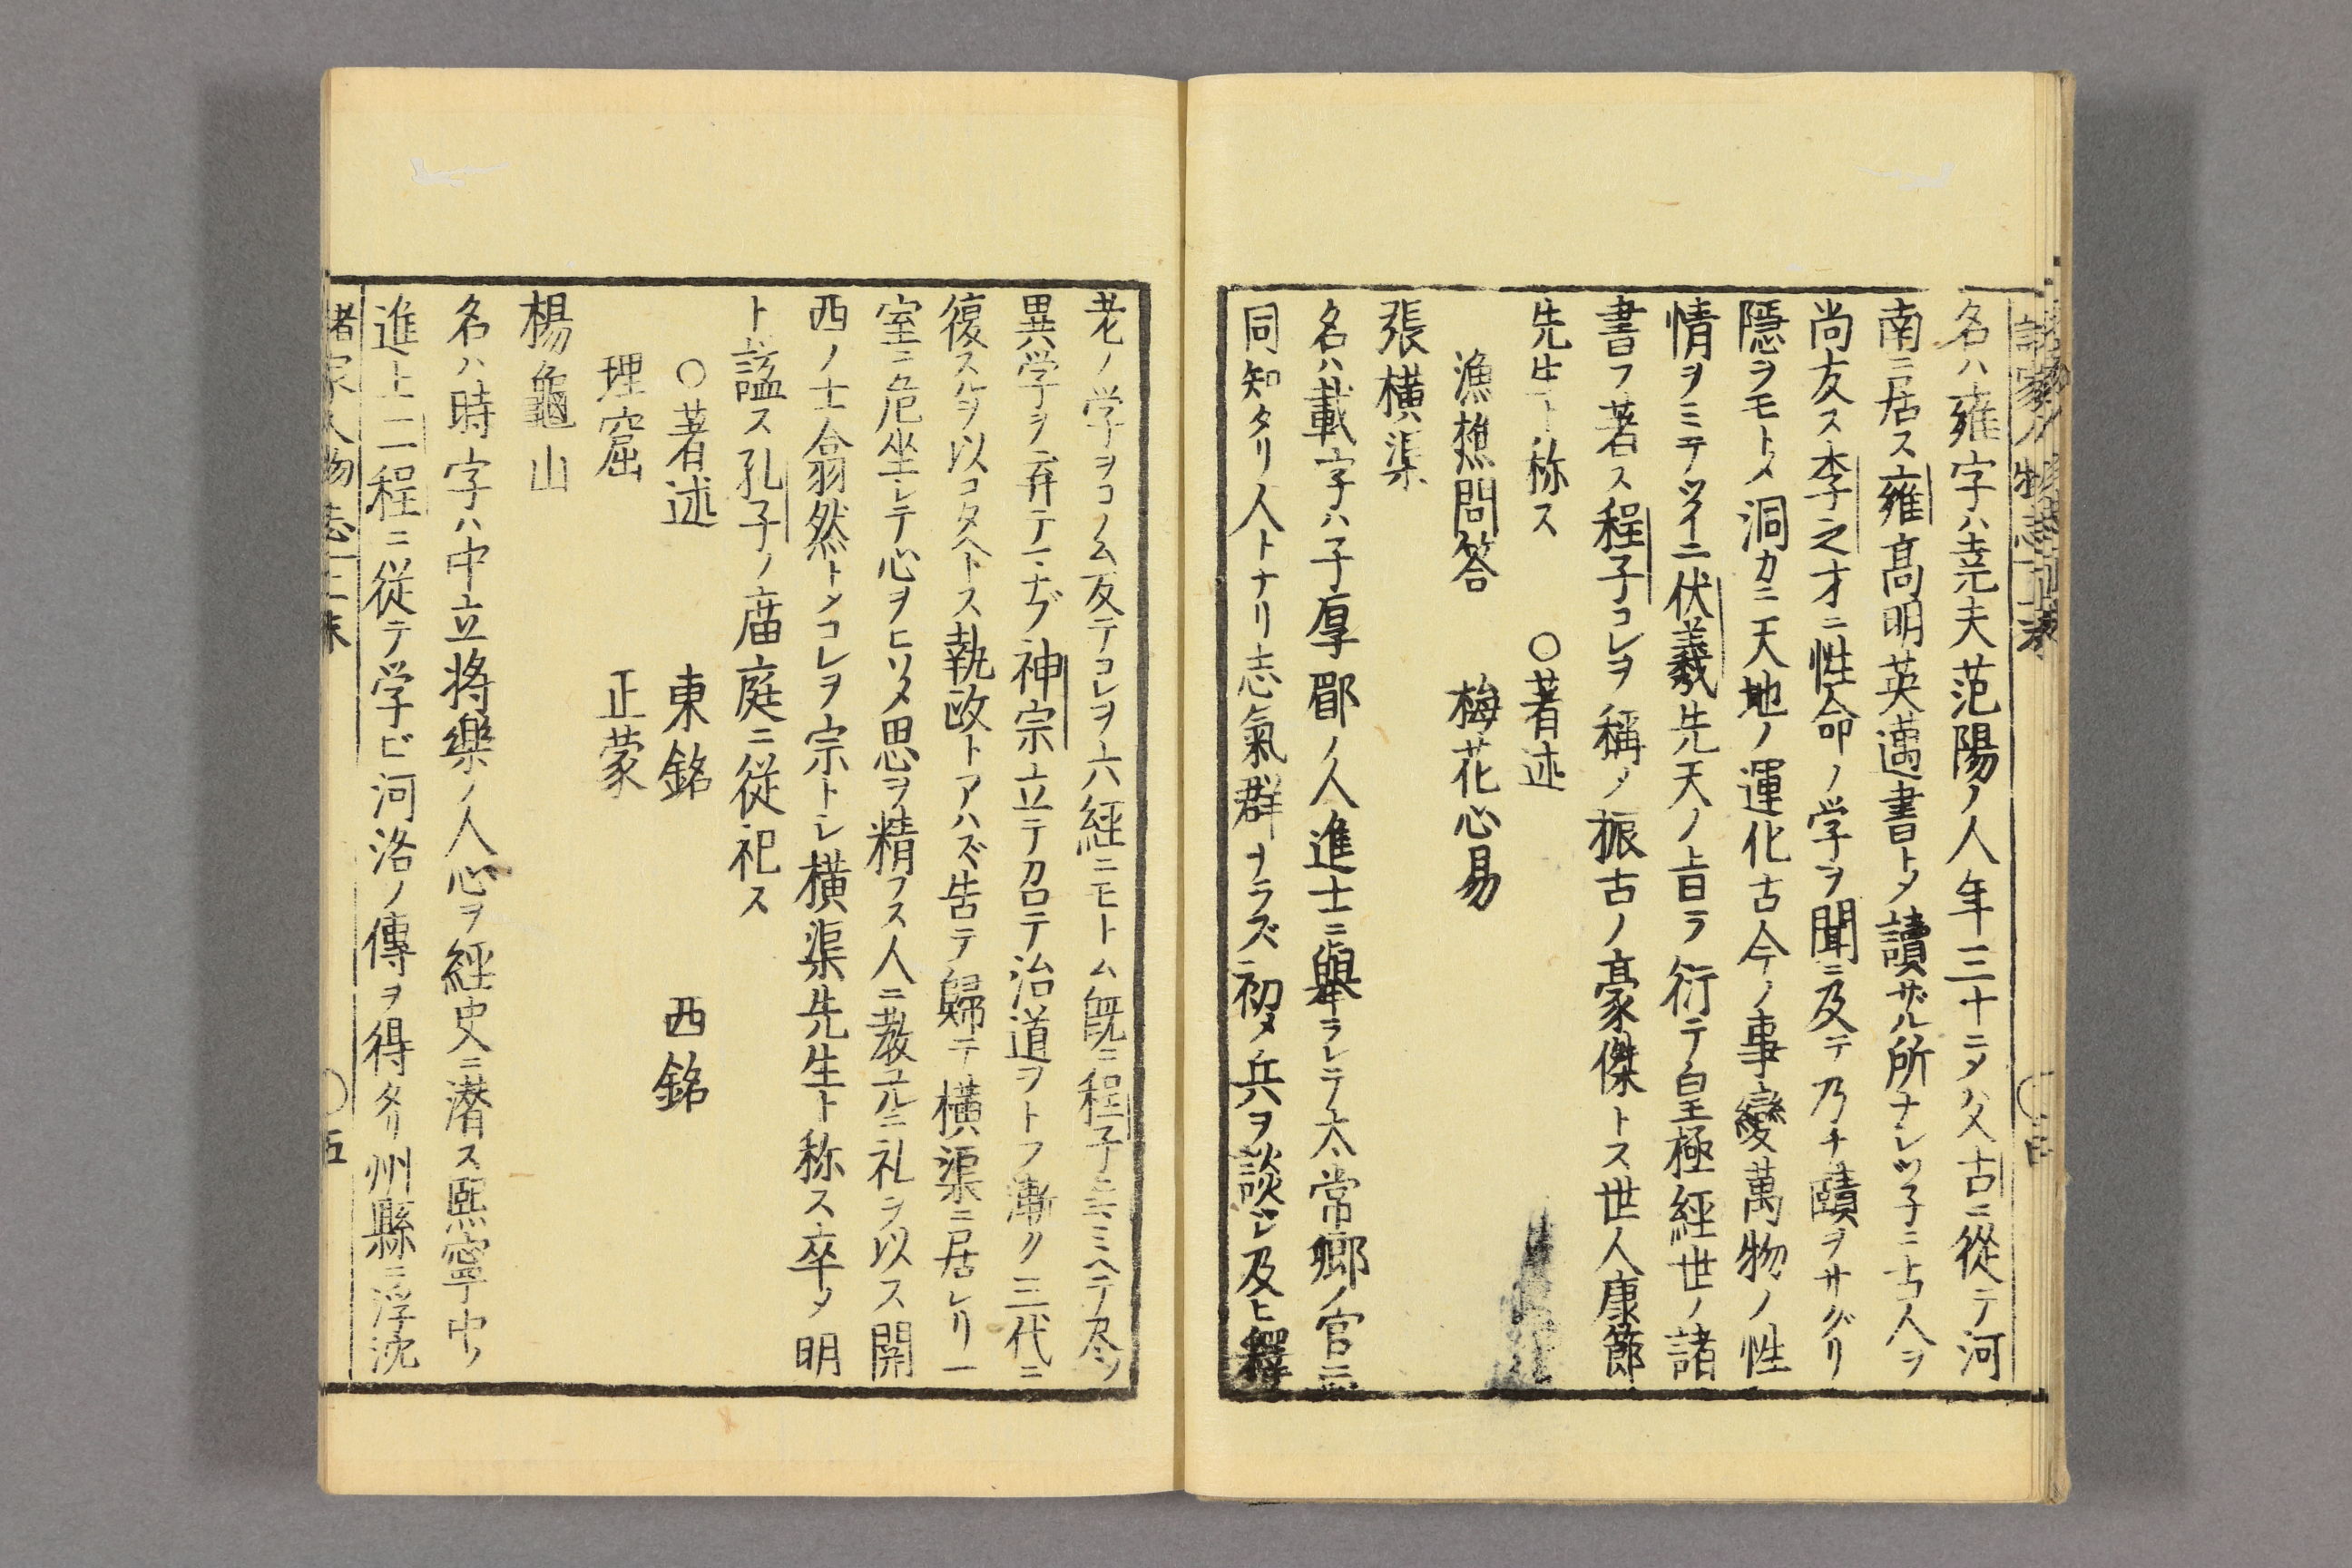 名ハ雍字ハ尭夫范陽ノ人年三十ニメ父古ニ從テ河
南ニ居ス雍髙明英邁書トメ讀ザル所ナシツ子ニ古人ヲ
尚友ス李之才ニ性命ノ学ヲ聞ニ及テ乃チ賾ヲサグリ
隠ヲモトメ洞カニ天地ノ運化古今ノ事變萬物ノ性
情ヲミテツイニ伏羲先天ノ旨ヲ衍テ皇極經世ノ諸
書ヲ著ス程子コレヲ稱メ振古ノ豪傑トス世人康節
先生ト称ス　〇著述
漁樵問答　梅花心易
張横渠
名ハ載字ハ子厚郿ノ人進士ニ擧ラレテ太常郷ノ官ニ
同知タリ人トナリ志氣群ナラズ初メ兵ヲ談シ及ヒ釋
老ノ学ヲコノム反テコレヲ六經ニモトム既ニ程子ニミヘテ尽ク
異学ヲ弃テマナブ神宗立テ召テ治道ヲトフ漸ク三代ニ
復スルヲ以コタヘトス執政トアハズ告テ歸テ横渠ニ居レリ一
室ニ危坐シテ心ヲヒソメ思ヲ精フス人ニ教ルニ礼ヲ以ス関
西ノ士翕然トメコレヲ宗トシ横渠先生ト称ス卒メ明
ト謚ス孔子ノ庿庭ニ從祀ス
〇著述　東銘　西銘
理窟　正蒙
楊龜山
名ハ時字ハ中立將樂ノ人心ヲ經史ニ潜ス熈寧中ノ
進士二程ニ從テ学ビ河洛ノ傳ヲ得タリ州縣ニ浮沈
諸家人物志 五